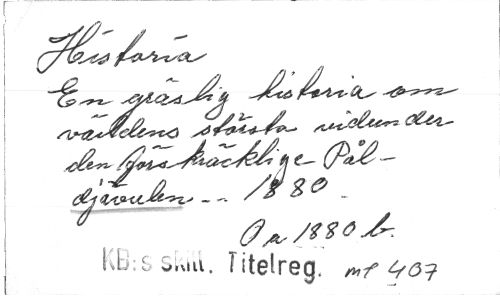 Historia
En gräslig historia om
världens största vidunder
den förskräcklige Pål-
djävulen -- 1880.
Oa 1880 b.
KB:s skill. Titelreg. mf 407